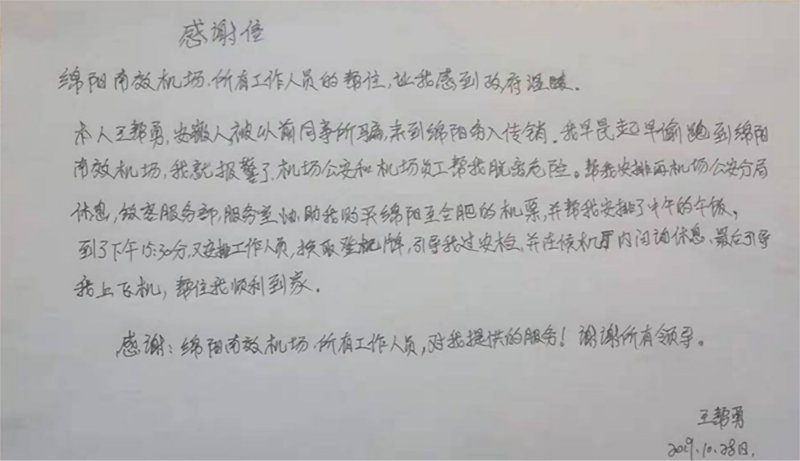 感谢信
绵阳南效机场.所有工作人员的帮住,让我感到政府温暖.
本人王帮勇,安徽人,被以前同事所骗,来到绵阳南入传销.我早晨起早偷跑到绵阳
南效机场,我就报警了,机场公安和机场员工帮我脱离危险。帮我安排再机场公安分局
休息,旅客服务部,服务室协助我购买绵阳至合肥的机票,并帮我安排了中午的午饭,
到了下午15:30分,又安排工作人员,换取登机牌,引导我过安检,并在候机厅内问询休息,最后引导
我上飞机,帮住我顺利到家.
感谢:绵阳南效机场.所有工作人员,对我提供的服务!谢谢所有领导。
王帮勇
2019.10.28日.